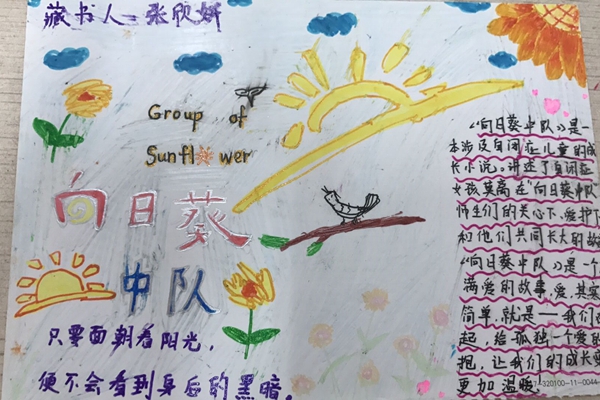 藏书人：张欣妍
Group of
Sunflower
向日葵
中队
只要面朝着阳光，
便不会看到身后的黑暗。
《向日葵中队》是一
本涉及自闭症儿童的成
长小说。讲述了自闭症
女孩莫离在“向日葵中队”
师生们的关心下、爱护下
和他们共同长大的故
《向日葵中队》是一个
满爱的故事，爱，其实
简单，就是——我们
起，给孤独一个爱的
抱，让我们的成长
更加温暖
320100-11-0044